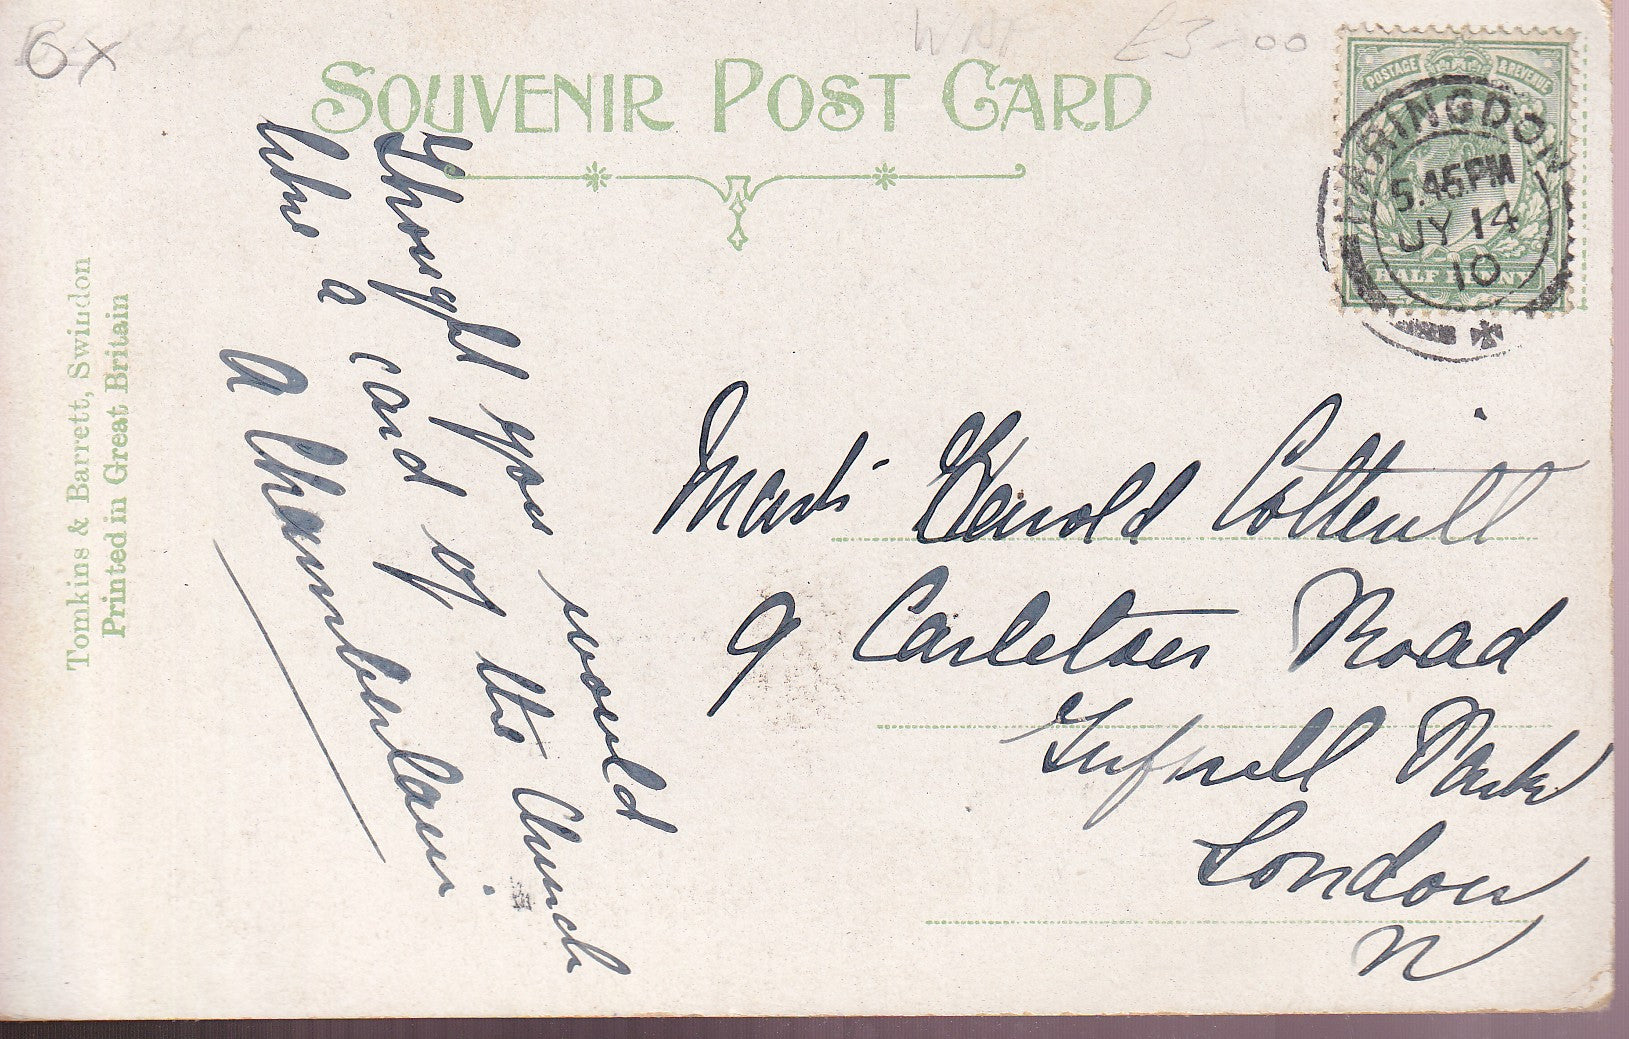 6x
£3-00
SOUVENIR POST CARD
POSTAGE & REVENUE
FARINGDON
5.45PM
JY 14
10
HALF PENNY
Tomkins & Barrett, Swindon
Printed in Great Britain
Thought you would
like a card of the Church
A Chamberlain
Mast. Harold Cotterill
9 Carleton Road
Tufnell Park
London
N